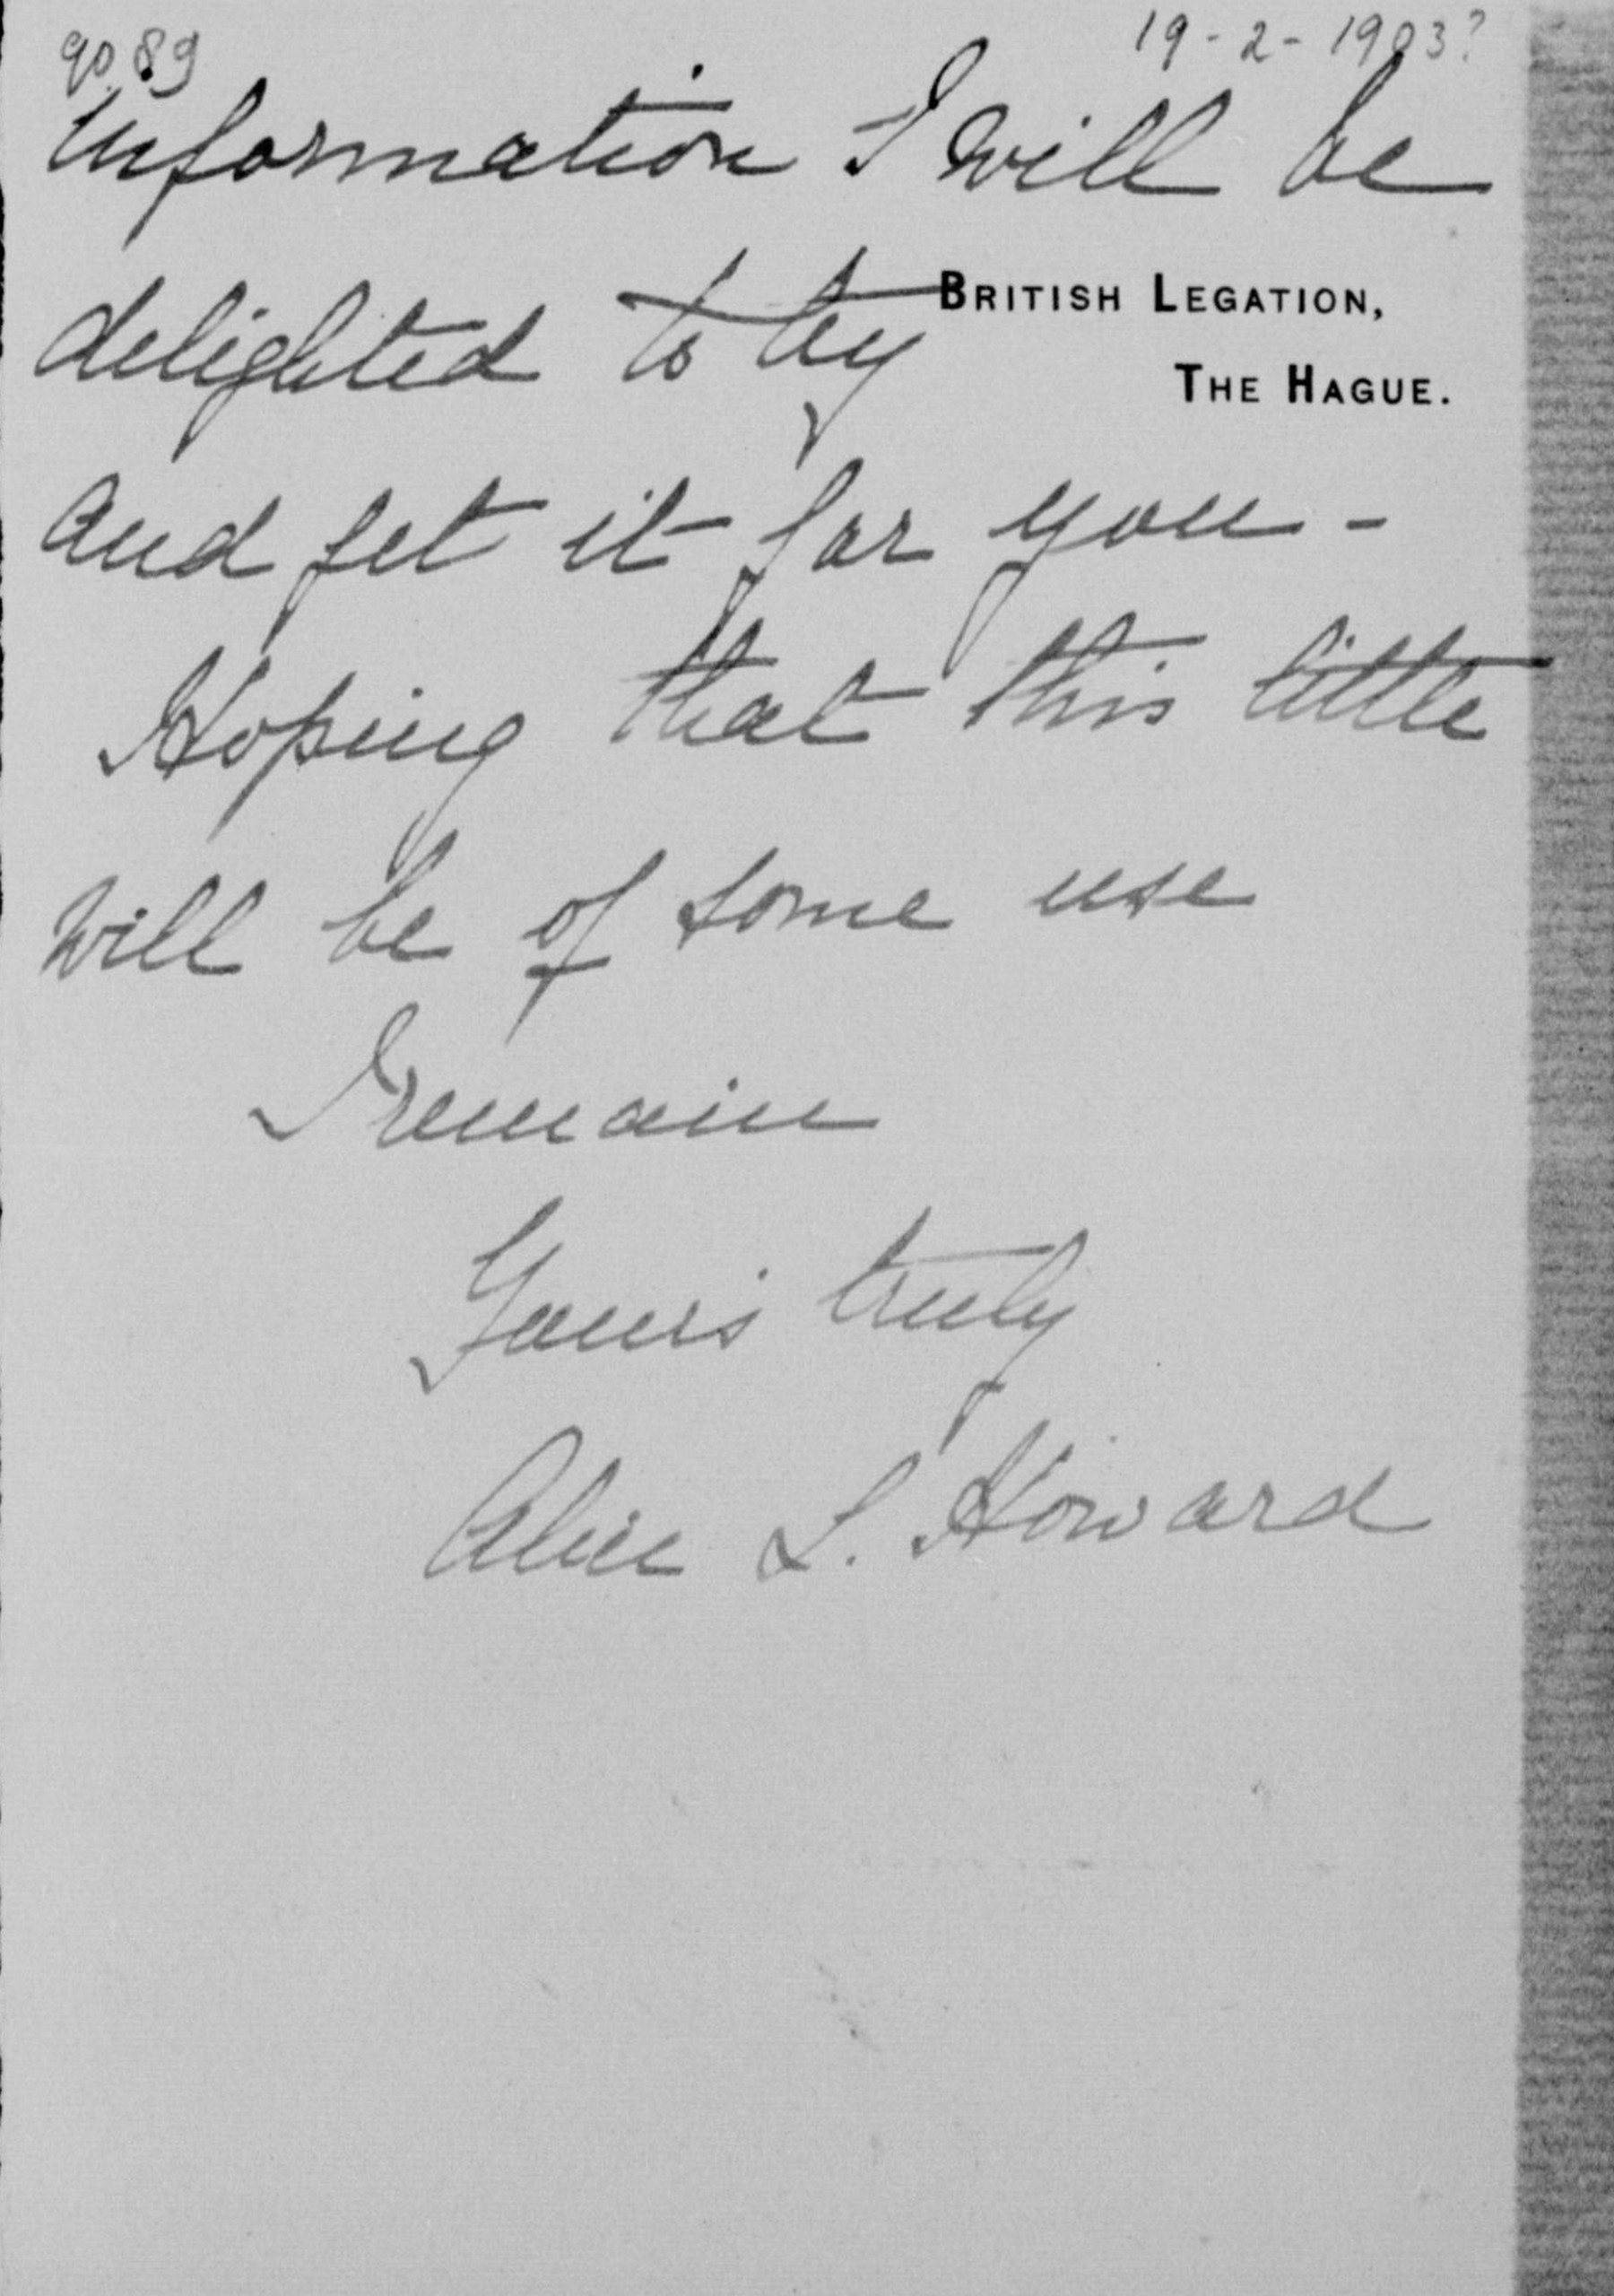 9089
19-2-1903?
information I will be
BRITISH LEGATION,
delighted to try
THE HAGUE.
and get it for you -
Hoping that this little
will be of some use
I remain
Yours truly
Alice L. Howard